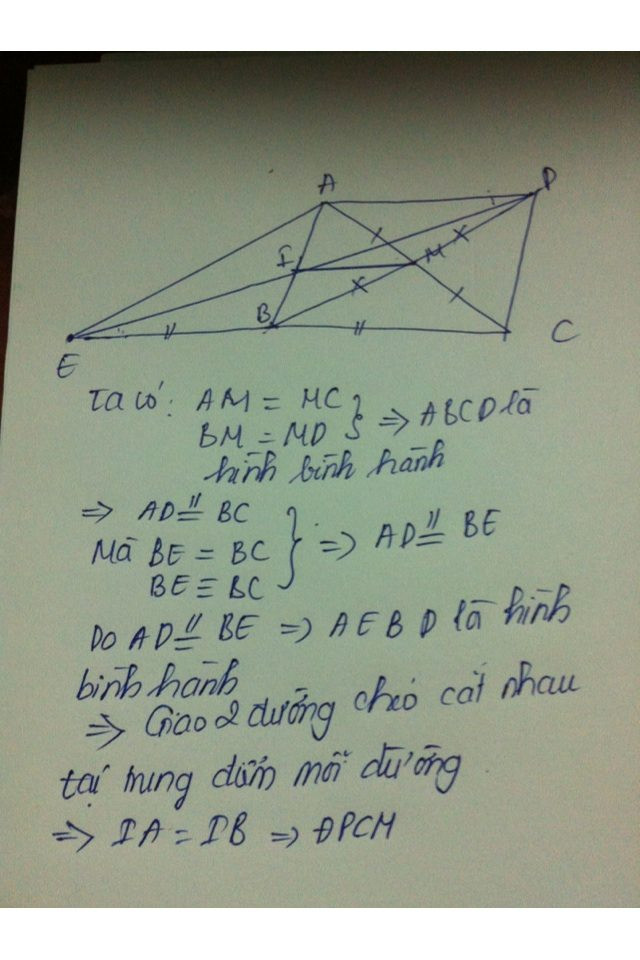 A
D
I
M
B
C
E
Ta có: AM = MC
BM = MD } => ABCD là
hình bình hành
=> AD //= BC
Mà BE = BC } => AD //= BE
BE ≡ BC
Do AD //= BE => AEBD là hình
bình hành
=> Giao 2 đường chéo cắt nhau
tại trung điểm mỗi đường
=> IA = IB => ĐPCM